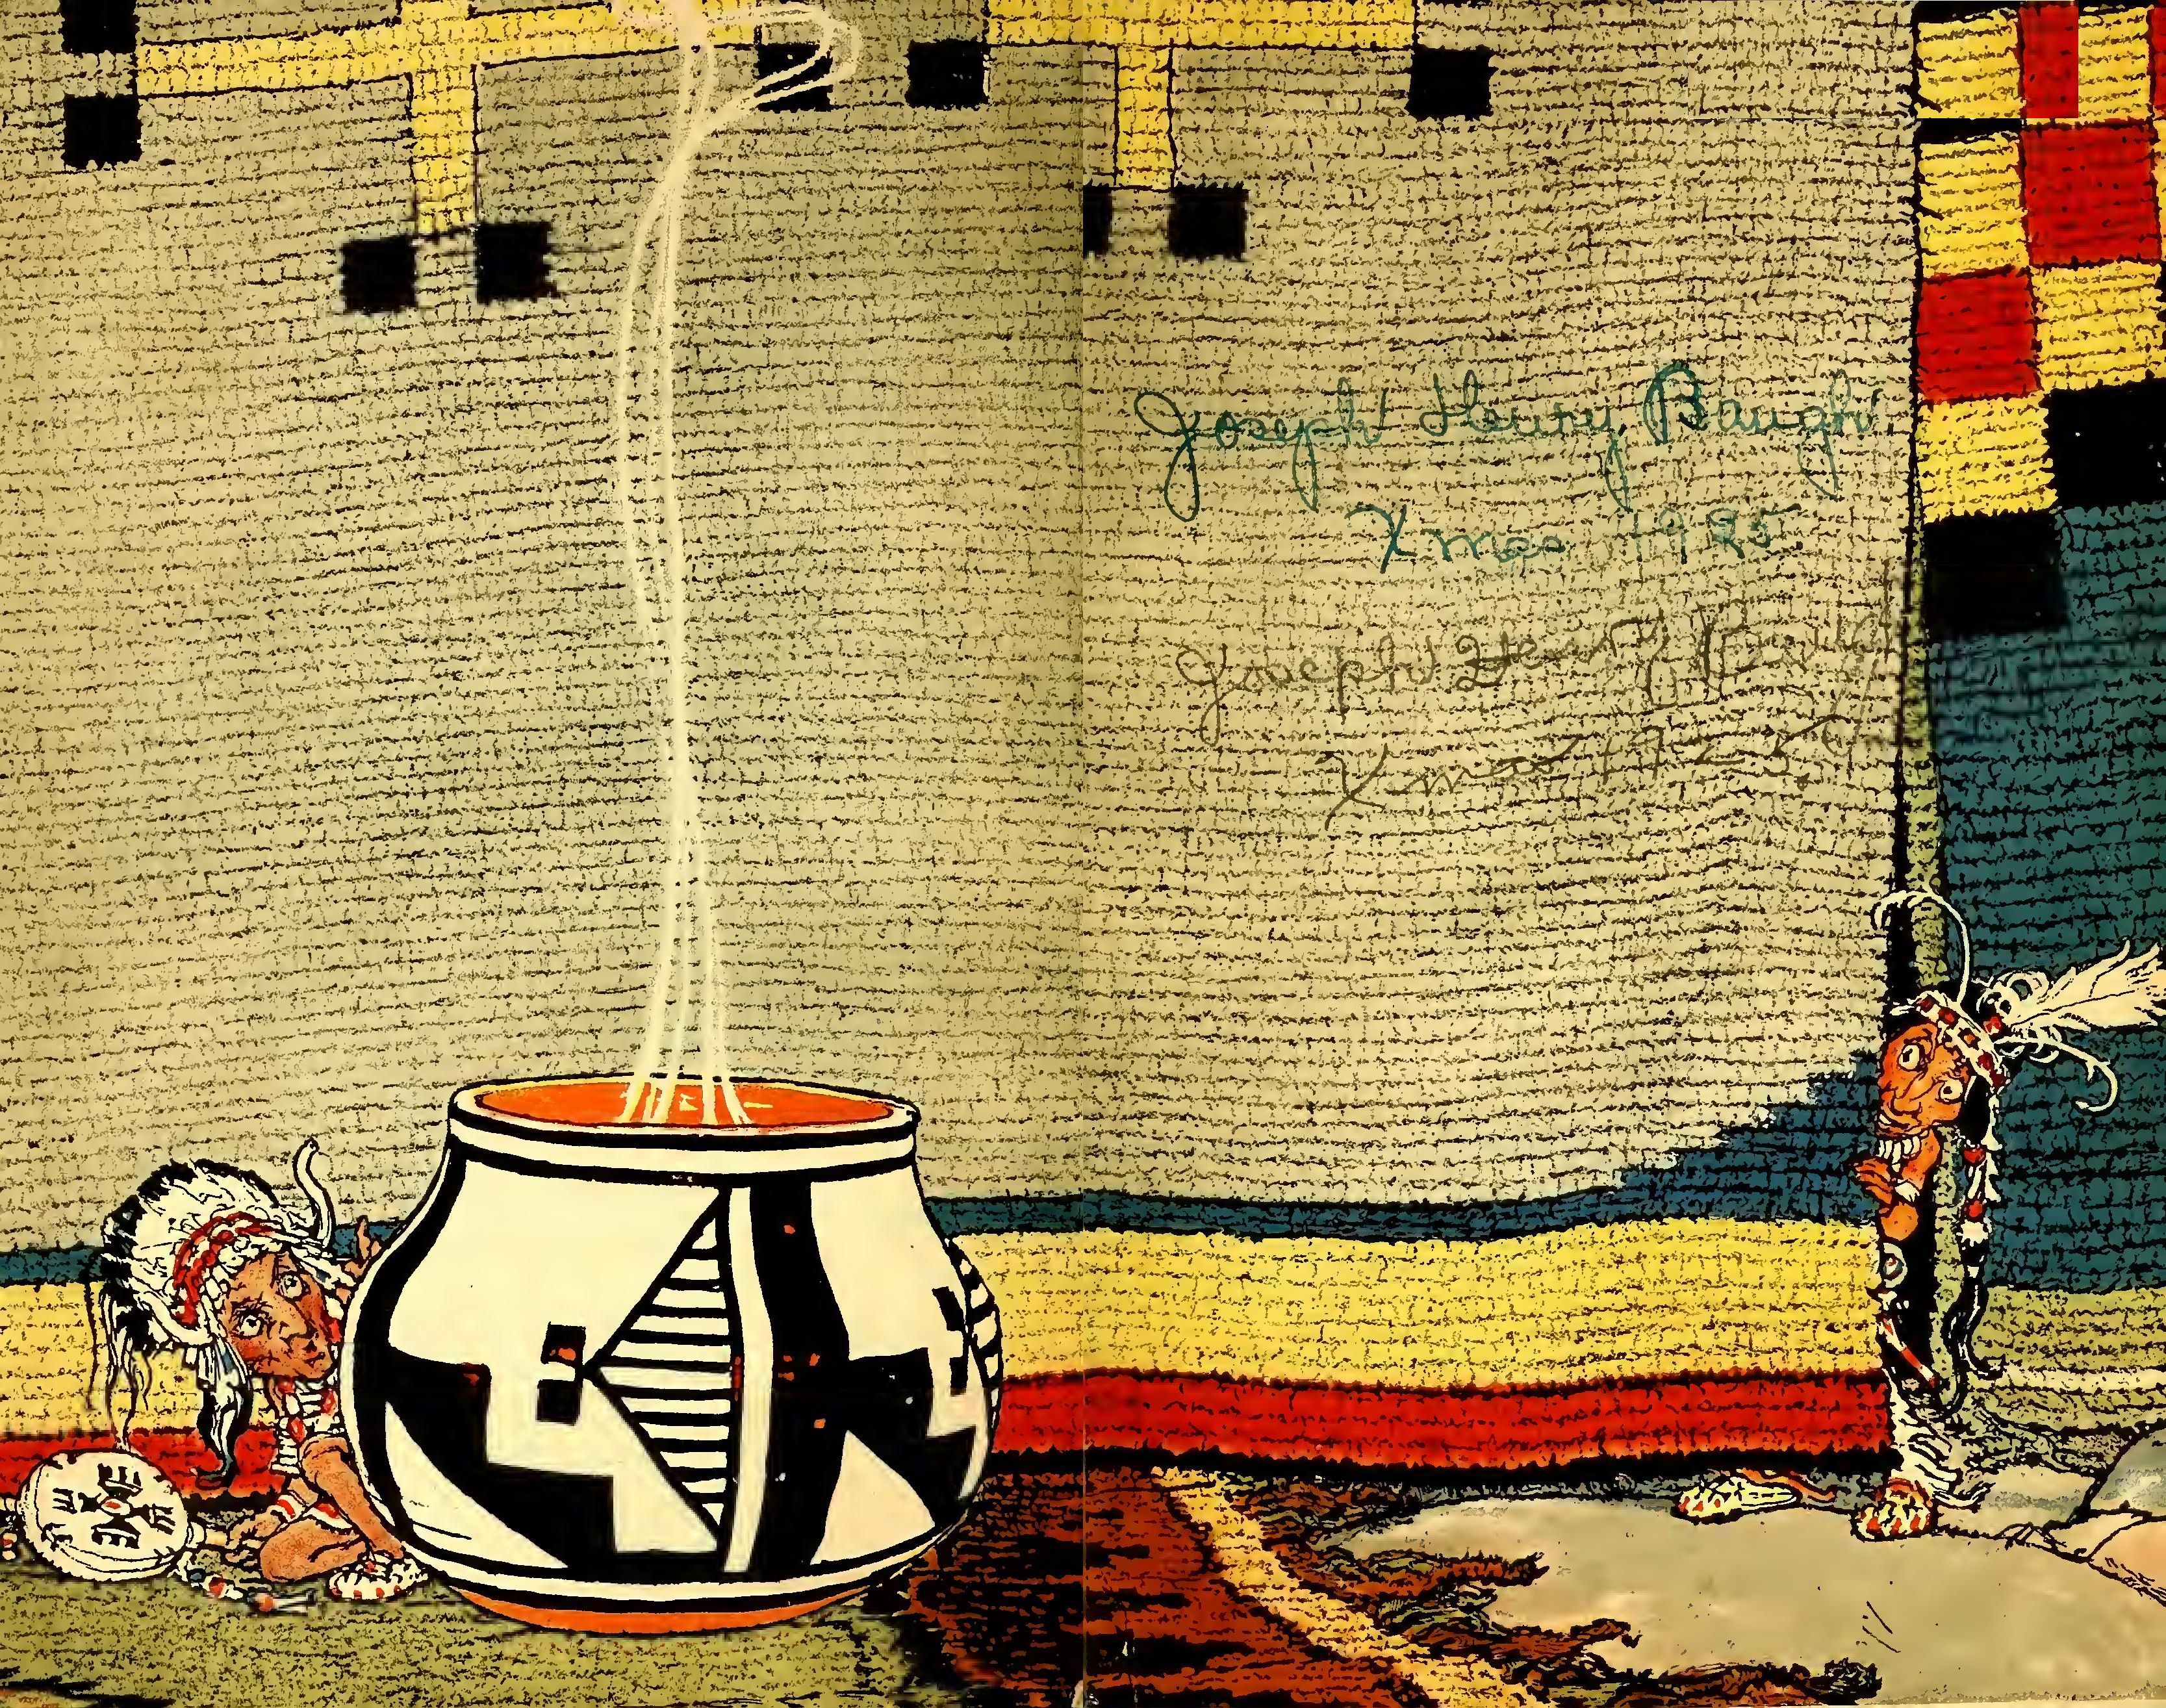 Joseph Henry Baugh
Xmas 1925
Joseph Henry Baugh
Xmas 1925